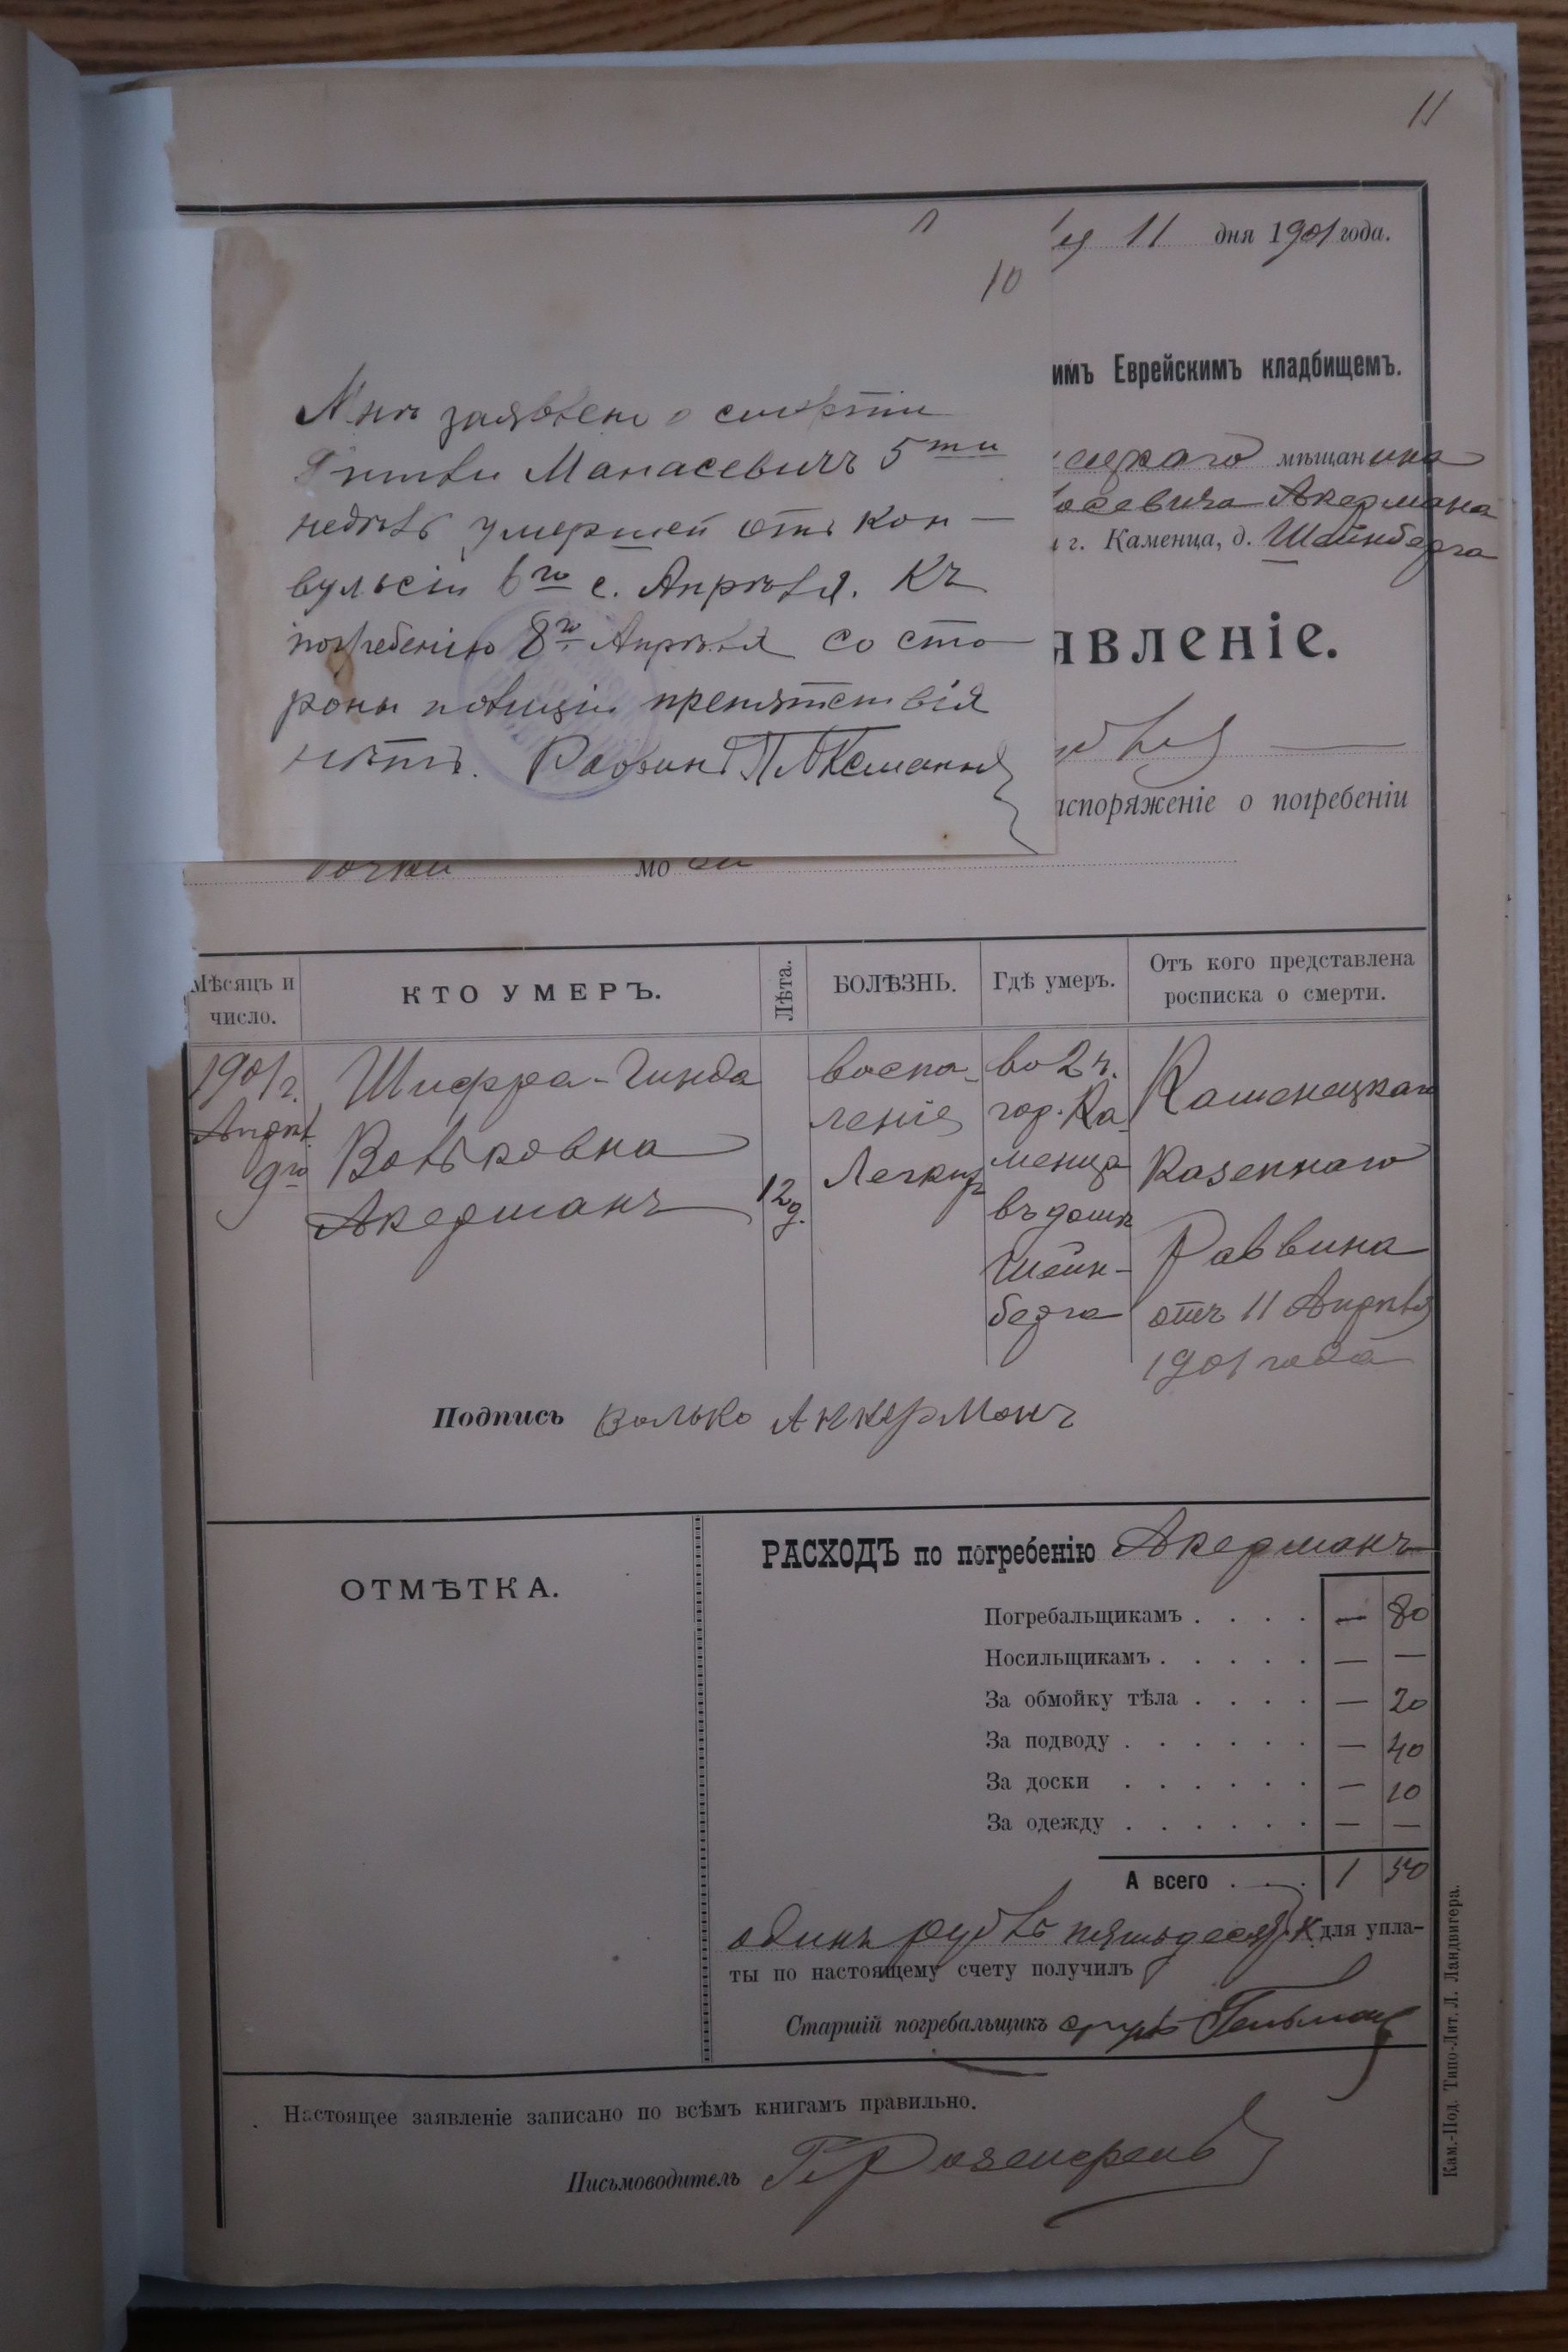 11
10
Мнѣ заявлено о смерти
Гитли Манасевичъ 5ти
недѣль умершей отъ кон-
вульсіи 6го с. Апрѣля. Къ
погребенію 8го Апрѣля со сто-
роны полиціи препятствія
нѣтъ. Раввинъ
11 дня 1901 года.
имъ Еврейскимъ кладбищемъ.
мѣщанина
Акермана
г. Каменца, д. Шейнберга
явленіе.
аспоряженіе о погребеніи
дочки моей
Мѣсяцъ и число.
КТО УМЕРЪ.
Лѣта.
БОЛѢЗНЬ.
Гдѣ умеръ.
Отъ кого представлена росписка о смерти.
1901 г.
Апрѣл.
9го
Шифра-Гинда
Вольковна
Акерманъ
12
д.
воспа-
леніе
Легкихъ
во 2 ч.
гор. Ка-
менца
въ домѣ
Шейн-
берга
Каменецкаго
Казеннаго
Раввина
отъ 11 Апрѣля
1901 года
Подпись Волько Аккерманъ
ОТМѢТКА.
РАСХОДЪ по погребенію Акерманъ
Погребальщикамъ . . . . — 80
Носильщикамъ . . . . . — —
За обмойку тѣла . . . . — 20
За подводу . . . . . . — 40
За доски . . . . . . — 10
За одежду . . . . . . — —
А всего . . . 1 50
одинъ рубль пятьдесят к для упла-
ты по настоящему счету получилъ
Старшій погребальщикъ
Настоящее заявленіе записано по всѣмъ книгамъ правильно.
Письмоводитель
Кам.-Под. Типо-Лит. Л. Ландвигера.